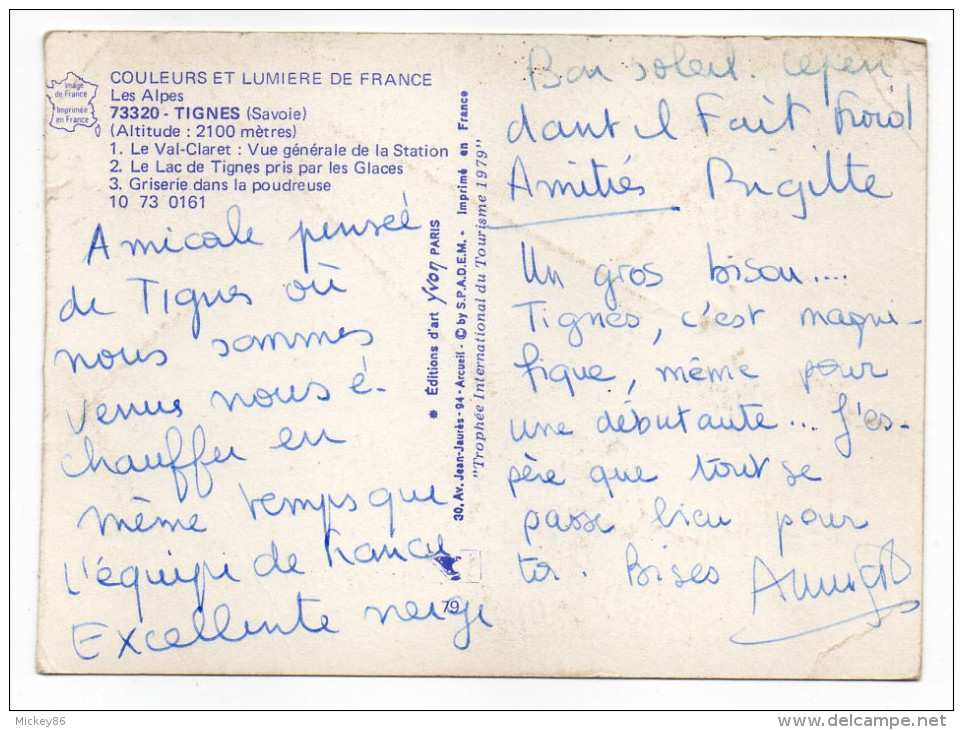 Image
de France
Imprimée
en France
COULEURS ET LUMIERE DE FRANCE
Les Alpes
73320 - TIGNES (Savoie)
(Altitude : 2100 mètres)
1. Le Val-Claret : Vue générale de la Station
2. Le Lac de Tignes pris par les Glaces
3. Griserie dans la poudreuse
10 73 0161
Amicale pensée
de Tignes où
nous sommes
venus nous é-
chauffer en
même temps que
l'équipe de France
Excellente neige
79
* Editions d'art yvon PARIS
30, Av. Jean-Jaurès - 94 - Arcueil - © by S.P.A.D.E.M. - Imprimé en France
"Trophée International du Tourisme 1979"
Bon soleil. cepen
dant il Fait froid
Amitiés Brigitte
Un gros bisou....
Tignes, c'est magni-
fique, même pour
une débutante... J'es-
père que tout se
passe bien pour
toi. Bises
Mickey86
www.delcampe.net